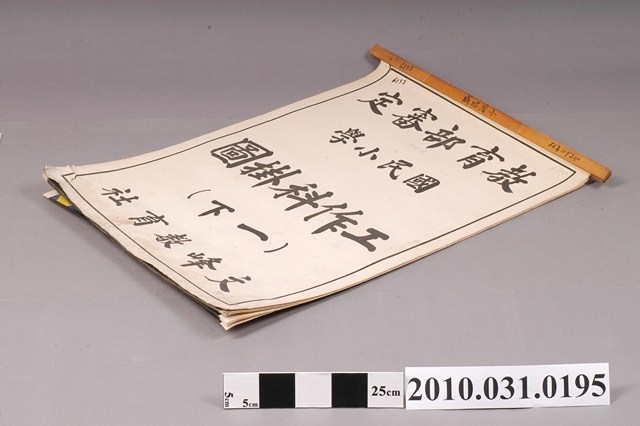 教育部審定
國民小學
工作科掛圖
（一下）
文峰教育社
6152
5cm
5cm
25cm
2010.031.0195